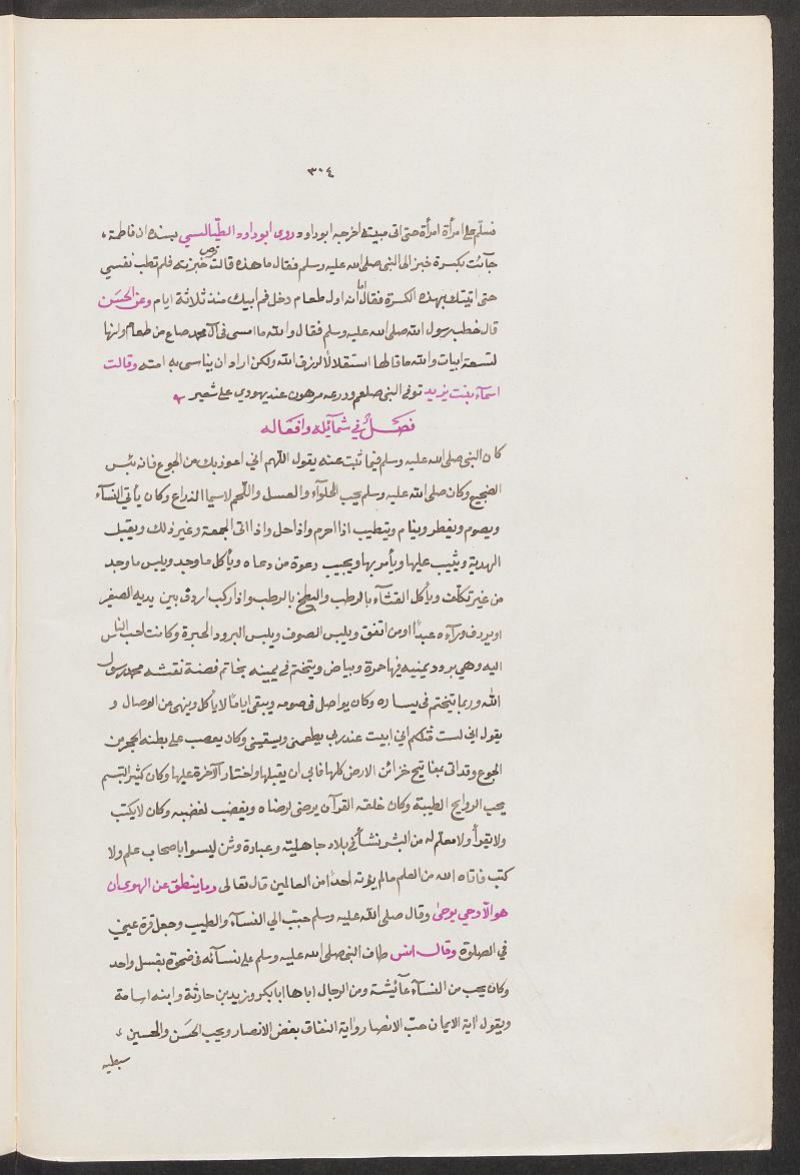 ٣٠٤
فسلّم على امرأة امرأة حتى اتى ميمونة اخرجه ابوداود روى ابوداود الطيالسي بسنده ان فاطمة،
جآئت بكسرة خبز الى النبي صلى الله عليه وسلم فقال ما هذه قالت قرص خبزته فلم تطب نفسي
حتى اتيتك بهذه الكسرة فقال اما انه اول طعام دخل فم ابيك منذ ثلاثة ايام وعن الحسَن
قال خطب رسول الله صلى الله عليه وسلم فقال والله ما امسى فى آل محمد صاع من طعام وانها
لتسعة ابيات والله ما قالها استقلالاً لرزق الله ولكن اراد ان يتاسى به امته وقالت
اسمآء بنت يزيد توفى النبي صلعم ودرعه مرهون عند يهودي على شعير
فصلٌ في شمائله وافعاله
كان النبي صلى الله عليه وسلم فيما ثبت عنه يقول اللهم اني اعوذ بك من الجوع فانه بئس
الضجيع وكان صلى الله عليه وسلم يحب الحلوآء والعسل واللحم لاسيما الذراع وكان يأتي النسآء
ويصوم ويفطر وينام ويتطيب اذا احرم واذا حل واذا اتى الجمعة وغير ذلك ويقبل
الهدية ويثيب عليها ويأمر بها ويجيب دعوة من دعاه ويأكل ما وجد ويلبس ما وجد
من غير تكلّف ويأكل القثآء بالرطب والبطيخ بالرطب واذا ركب اردف بين يديه الصغير
او يردف ورآءه عبداً او من اتفق ويلبس الصوف ويلبس البرود الحبرة وكانت احب الناس
اليه وهي برود يمنيه فيها حمرة وبياض ويتختم في يمينه بخاتم فضة نقشه محمد رسول
الله وربما يتختم في يساره وكان يواصل في صومه ويبقى اياماً لا يأكل وينهى من الوصال و
يقول اني لست مثلكم اني ابيت عند ربي يطعمني ويسقيني وكان يعصب على بطنه الحجر من
الجوع وقد اتى بمفاتيح خزائن الارض كلها فابى ان يقبلها واختار الآخرة عليها وكان كثير التبسم
يحب الروايح الطيبة وكان خلقه القرآن يرضى لرضاه ويغضب لغضبه وكان لا يكتب
ولا يقرأ ولا معلم له من البشر نشأ في بلاد جاهلية وعبادة وثن ليسوا باصحاب علم ولا
كتب فاتاه الله من العلم مالم يؤته احداً من العالمين قال تعالى وما ينطق عن الهوى ان
هو الّا وحي يوحى وقال صلى الله عليه وسلم حبّب الي النسآء والطيب وجعل قرة عيني
في الصلوة وقال انس طاف النبي صلى الله عليه وسلم على نسآئه فى ضحوة بغسل واحد
وكان يحب من النسآء عآئيشة ومن الرجال اباها ابابكر وزيد بن حارثة وابنه اسامة
ويقول اية الايمان حبّ الانصار واية النفاق بغض الانصار ويحب الحسَن والحسين
سبطيه